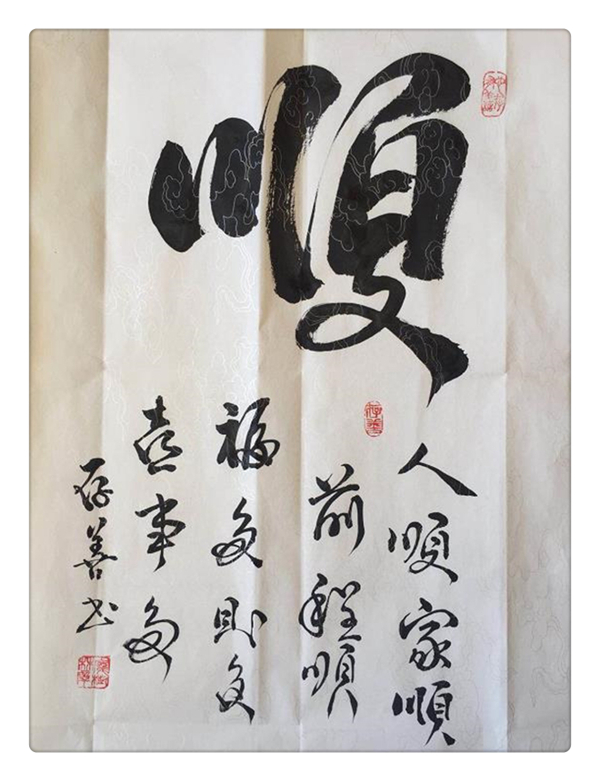 順
人順家順
前程順
福多財多
喜事多
存善书
存善